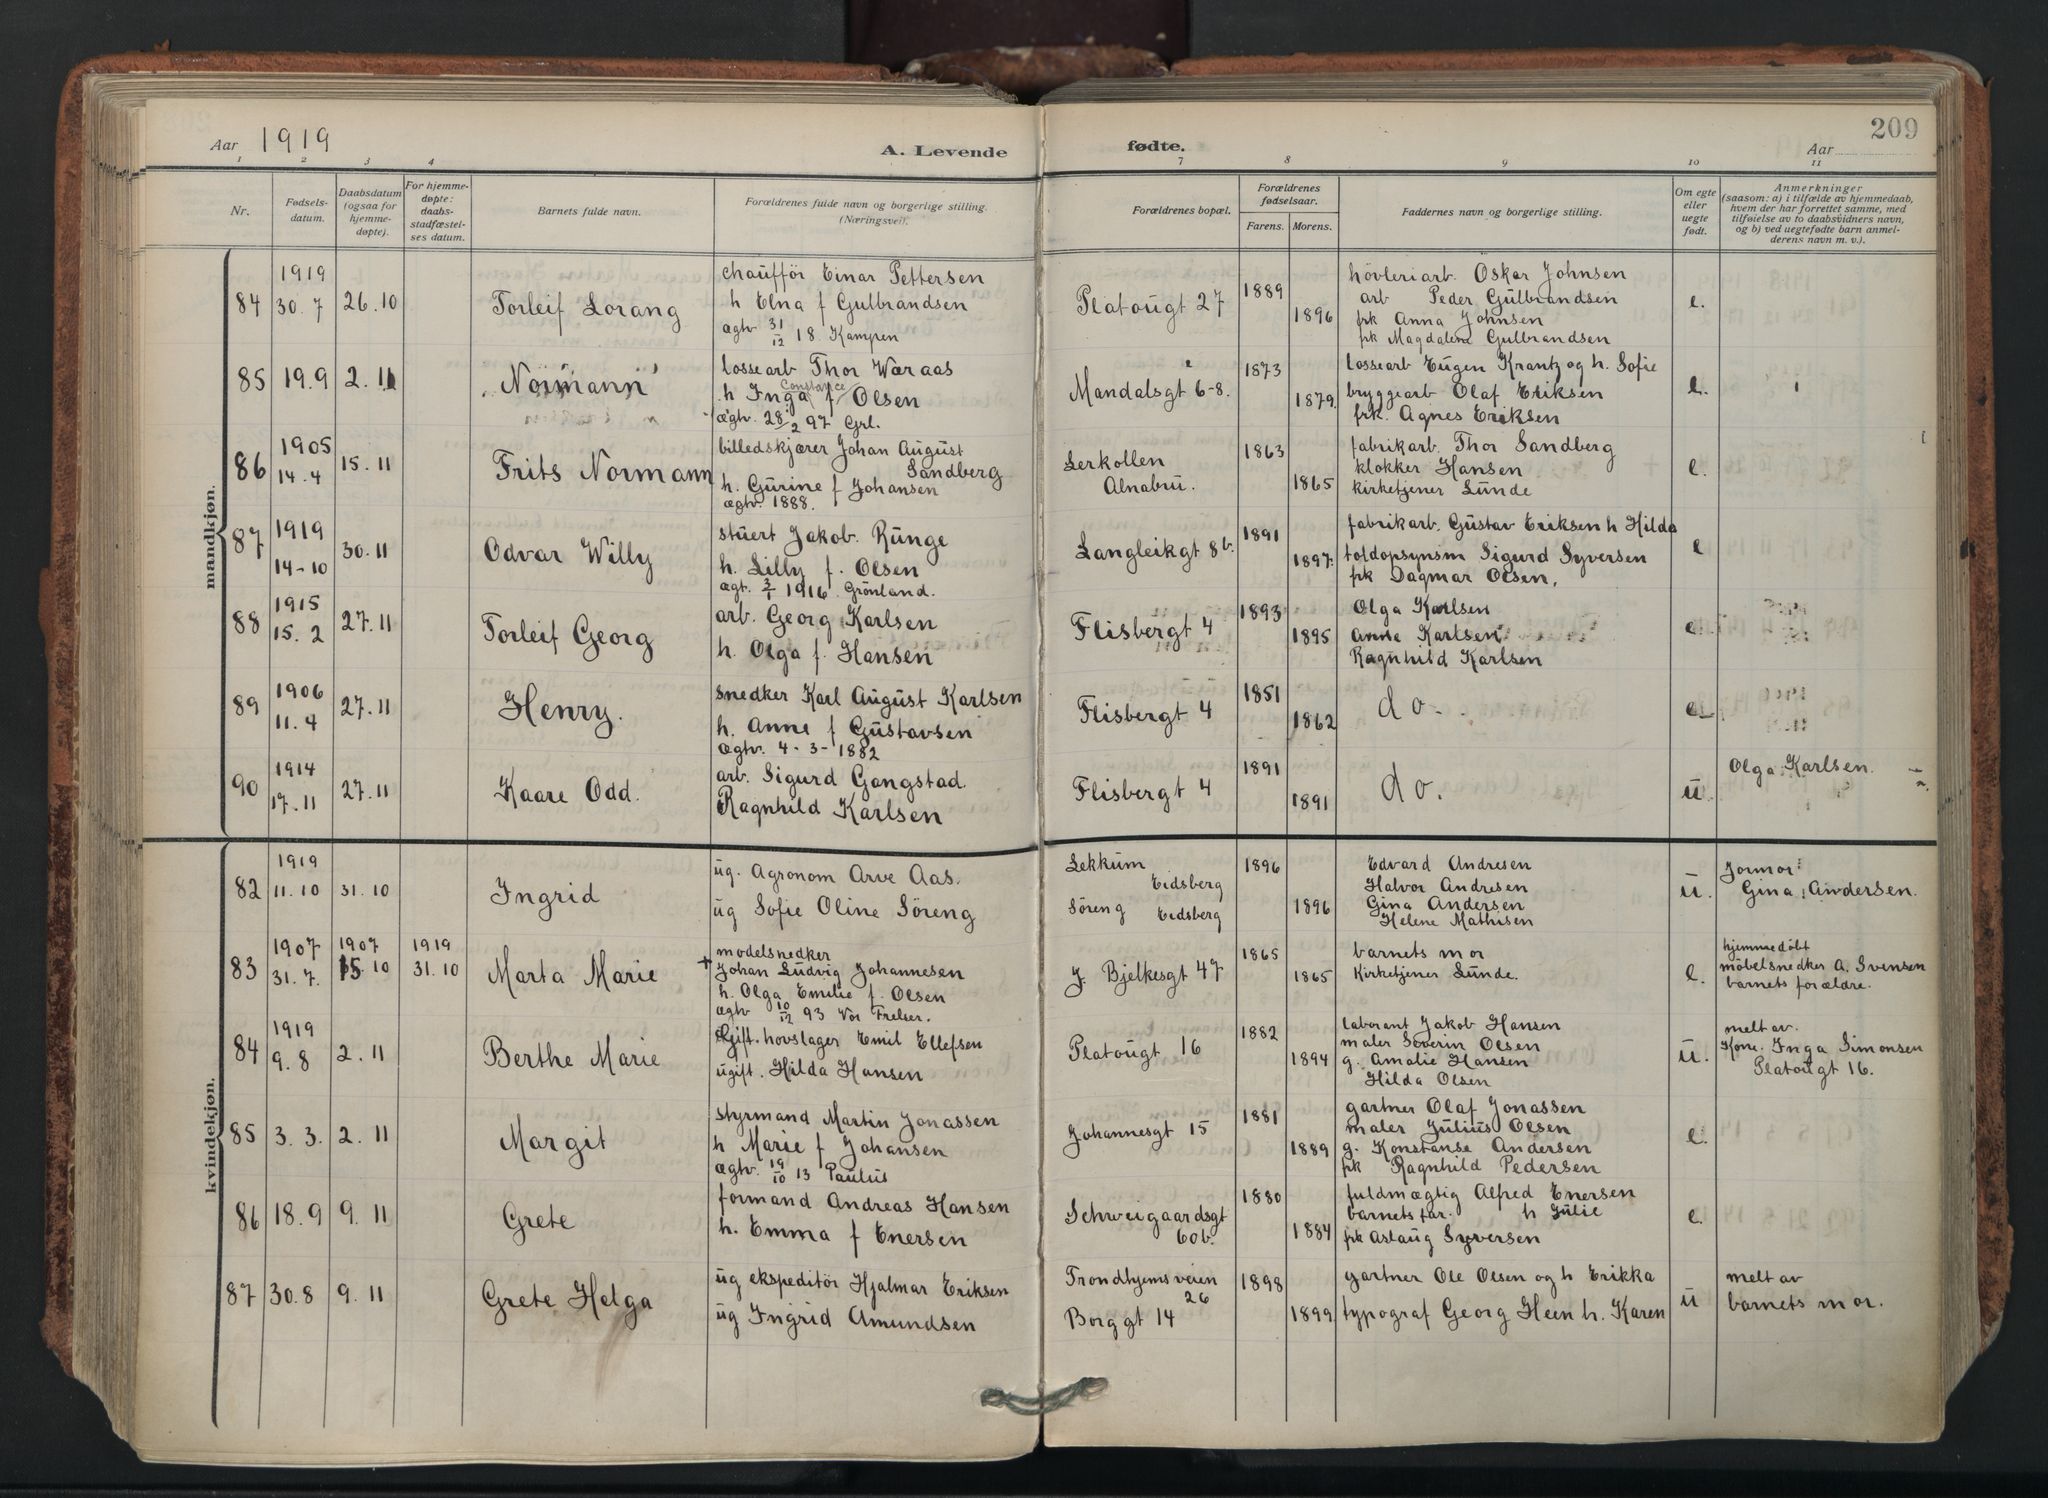 209
Aar 1919
A. Levende
fødte.
Aar
1 2 3 4
7 8 9 10 11
Nr.
Fødsels-
datum.
Daabsdatum
(ogsaa for
hjemme-
døpte).
For hjemme-
døpte:
daabs-
stadfæstel-
ses datum.
Barnets fulde navn.
Forældrenes fulde navn og borgerlige stilling.
(Næringsvei).
Forældrenes bopæl.
Forældrenes
fødselsaar.
Farens. Morens.
Faddernes navn og borgerlige stilling.
Om egte
eller
uegte
født.
Anmerkninger
(saasom: a) i tilfælde av hjemmedaab,
hvem der har forrettet samme, med
tilføielse av to daabsvidners navn,
og b) ved uegtefødte barn anmel-
derens navn m. v.).
mandkjøn.
84
1919
30.7
26.10
Torleif Lorang
chaufför Einar Pettersen
h Elna f Gulbrandsen
ægtv 31/12 18 Kampen
Platougt 27
1889
1896
hövleriarb. Oskar Johnsen
arb Peder Gulbrandsen
frk Anna Johnsen
frk Magdalena Gulbrandsen
e.
85
19.9
2.11
Normann
lossearb Thor Wæraas
h Inga Constance f Olsen
ægtv. 28/2 97 Grl.
Mandalsgt 6-8.
1873
1879.
lossearb Eugen Krantz og h. Sofie
bryggearb Olaf Eriksen
frk. Agnes Eriksen
e.
86
1905
14.4
15.11
Frits Normann
billedskjærer Johan August
Sandberg
h. Gurine f Johansen
ægtv. 1888.
Lerkollen
Alnabru.
1863
1865
fabrikarb. Thor Sandberg
klokker Hansen
kirketjener Lunde
e.
87
1919
14-10
30.11
Odvar Willy
stuert Jakob Runge
h. Lilly f. Olsen
ægt. 3/1 1916 Grönland.
Langleikgt 8b.
1891
1897.
fabrikarb. Gustav Eriksen h Hilda
toldopsynsm Sigurd Syversen
frk Dagmar Olsen,
e
88
1915
15.2
27.11
Torleif Georg
arb. Georg Karlsen
h. Olga f. Hansen
Flisbergt 4
1893
1895
Olga Karlsen
Anne Karlsen
Ragnhild Karlsen
e.
89
1906
11.4
27.11
Henry.
snedker Karl August Karlsen
h. Anne f Gustavsen
ægtv. 4-3-1882
Flisbergt 4
1851
1862
do.
e
90
1914
17.11
27.11
Kaare Odd.
arb. Sigurd Gangstad.
Ragnhild Karlsen
Flisbergt 4
1891
1891
do.
u.
Olga Karlsen.
kvindekjøn.
82
1919
11.10
31.10
Ingrid
ug. Agronom Arve Aas.
ug Sofie Oline Söreng
Lekkum
Eidsberg
Söreng Eidsberg
1896
1896
Edvard Andresen
Halvor Andresen
Gina Andersen
Helene Mathisen
u.
Jormor:
Gina Andersen.
83
1907
31.7.
1907
15.10
1919
31.10
Marta Marie
+ modelsnedker
Johan Ludvig Johannesen
h. Olga Emilie f. Olsen
ægtv 10/12 93 Vor Frelser.
J. Bjelkesgt 47
1865
1865
barnets mor
Kirketjener Lunde.
e.
hjemmedöbt
möbelsnedker A. Svensen
barnets forældre.
84
1919
9.8
2.11
Berthe Marie
Gift. hovslager Emil Ellefsen
ugift. Hilda Hansen
Platougt 16
1882
1894
laborant Jakob Hansen
maler Severin Olsen
g. Amalie Hansen
Hilda Olsen
u.
melt av.
Kone. Inga Simonsen
Platougt 16.
85
3.3.
2.11
Margit
styrmand Martin Jonassen
h Marie f Johansen
ægtv. 19/10 13 Paulus
Johannesgt 15
1881
1889
gartner Olaf Jonassen
maler Julius Olsen
g. Konstanse Andersen
frk Ragnhild Pedersen
e.
86
18.9
9.11
Grete
formand Andreas Hansen
h. Emma f Enersen
Schweigaardsgt
60b.
1880
1884
fuldmægtig Alfred Enersen
barnets far. h Julie
frk Aslaug Syversen
e.
87
30.8
9.11
Grete Helga
ug ekspeditör Hjalmar Eriksen
ug Ingrid Amundsen
Trondhjemsveien
26
Borggt 14
1898
1899
gartner Ole Olsen og h Erikka
typograf Georg Heen h. Karen
u
melt av
barnets mor.